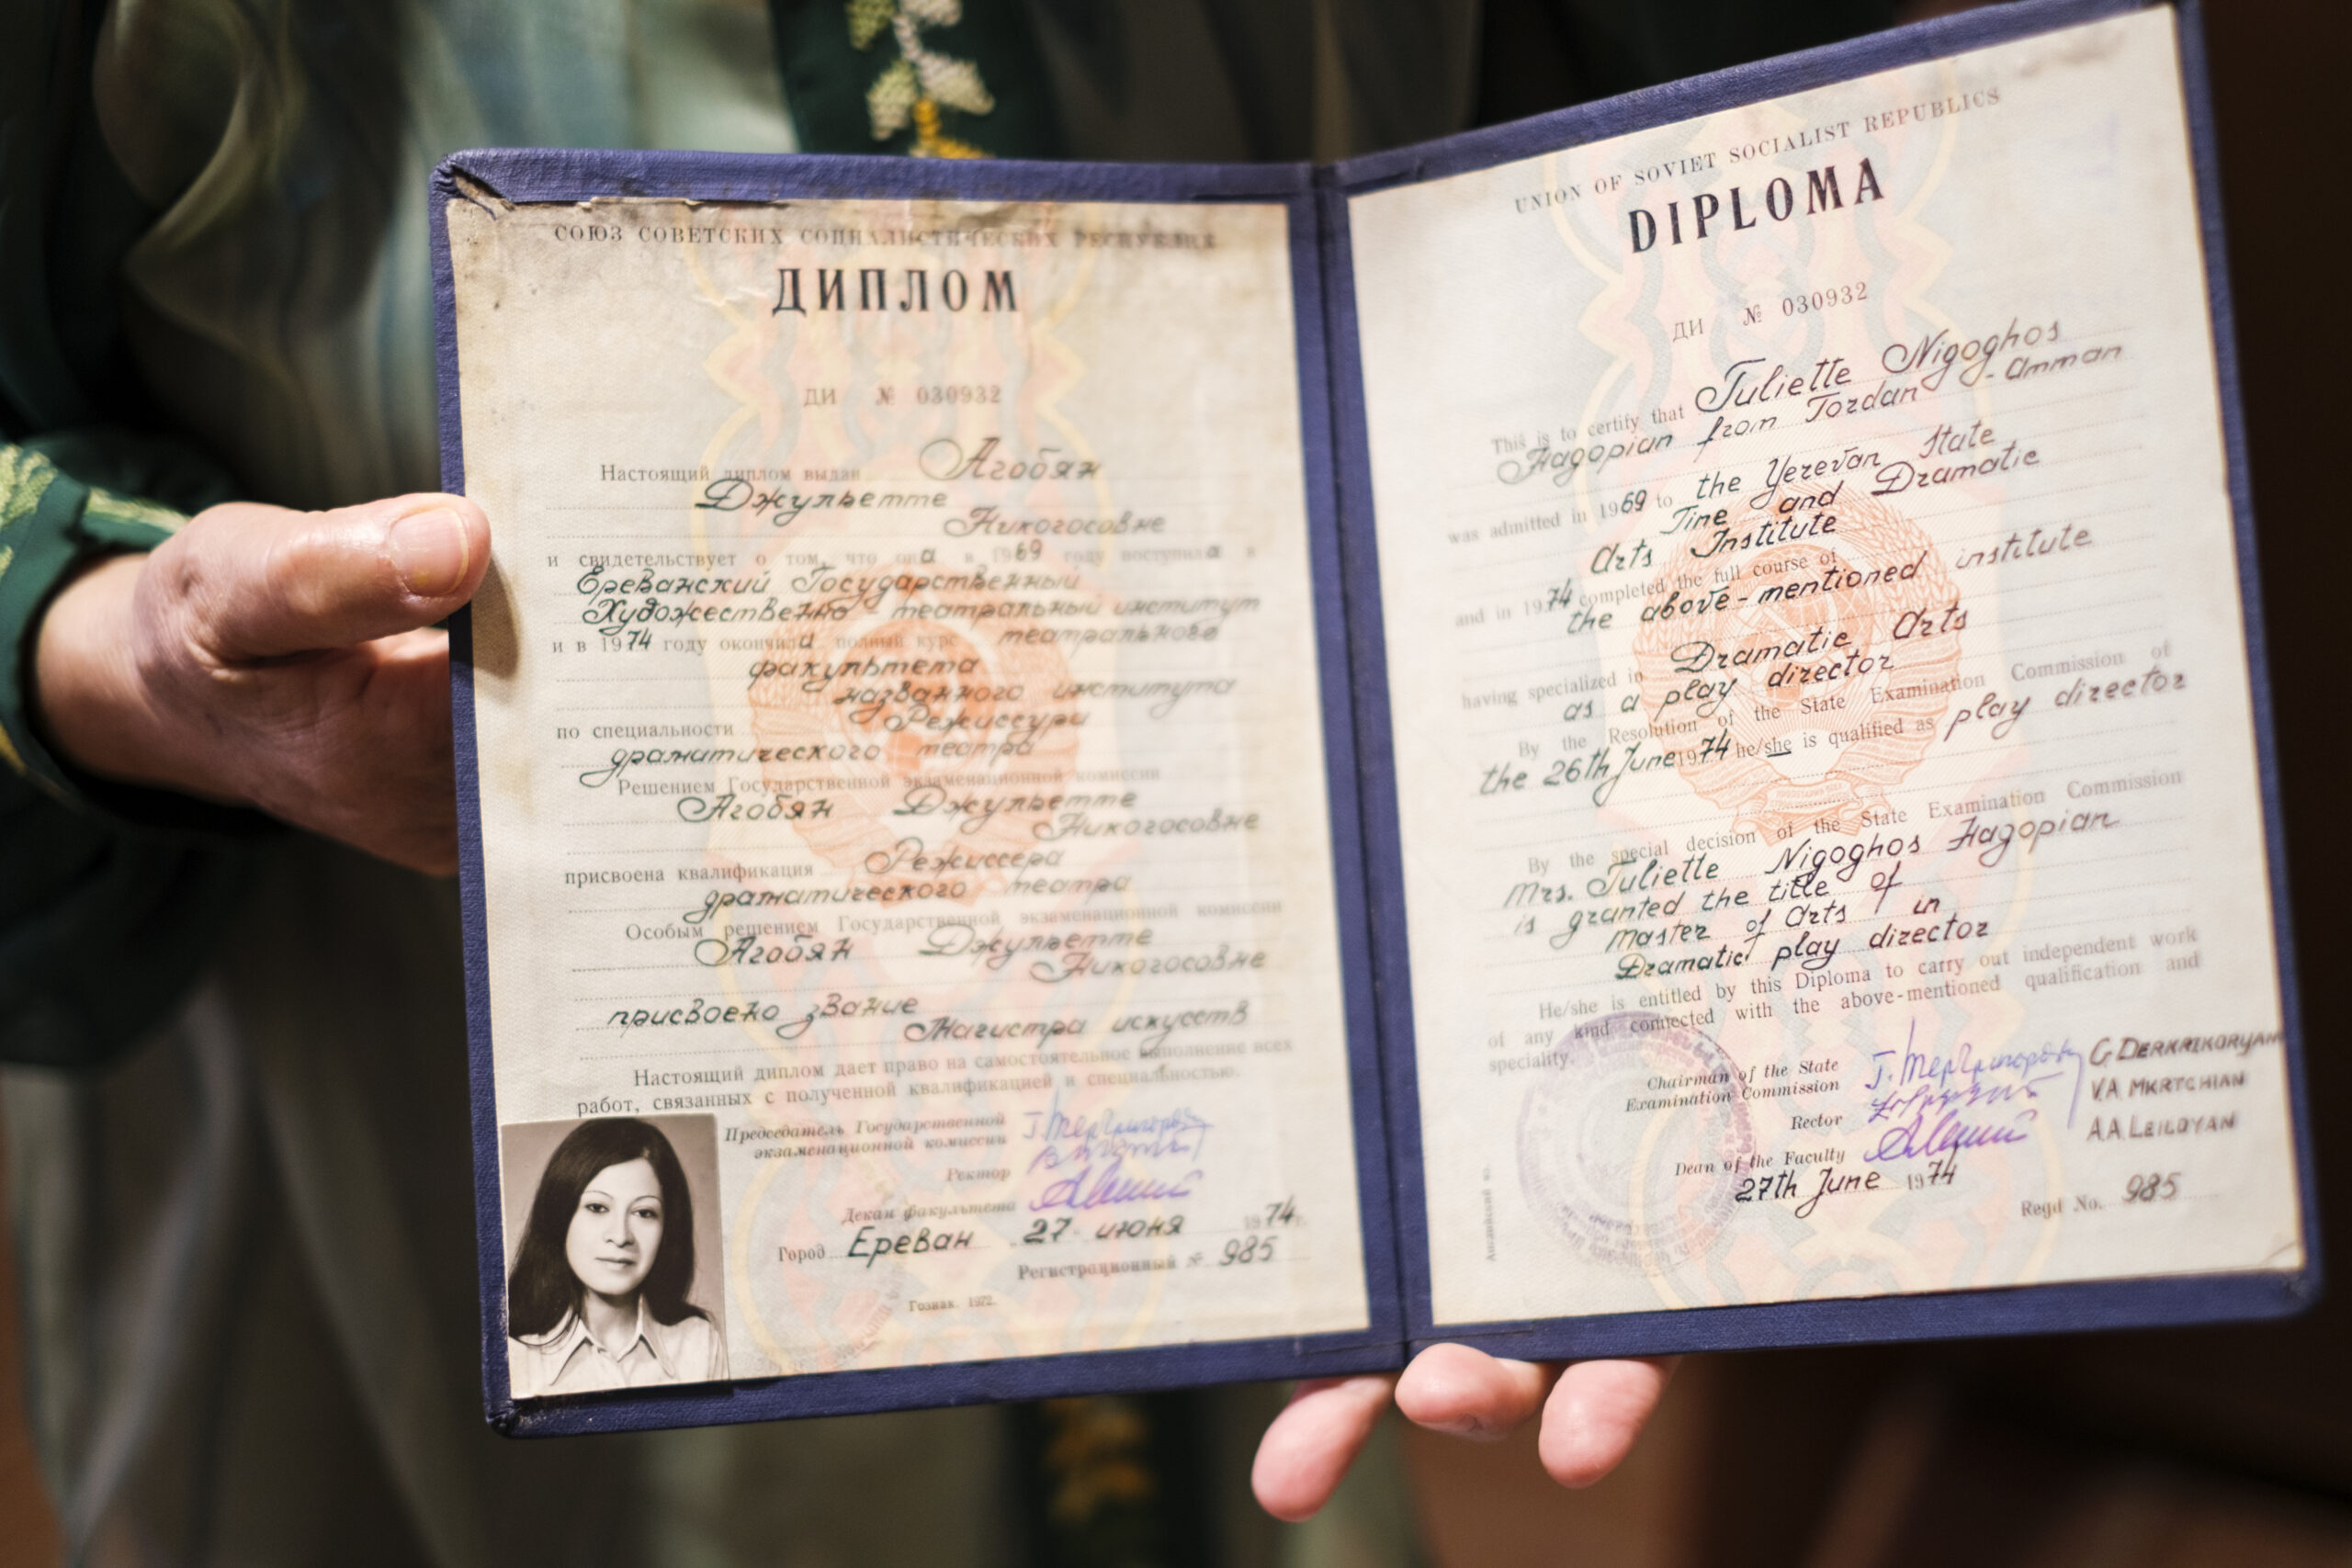 СОЮЗ СОВЕТСКИХ СОЦИАЛИСТИЧЕСКИХ РЕСПУБЛИК
ДИПЛОМ
ДИ № 030932
Настоящий диплом выдан Агобян
Джульетте
Никогосовне
и свидетельствует о том, что она в 1969 году поступила в
Ереванский Государственный
Художественно театральный институт
и в 1974 году окончила полный курс театрального
факультета
названного института
по специальности Режиссури
драматического театра
Решением Государственной экзаменационной комиссии
Агобян Джульетте
Никогосовне
присвоена квалификация Режиссера
драматического театра
Особым решением Государственной экзаменационной комиссии
Агобян Джульетте
Никогосовне
присвоено звание
Магистра искусств
Настоящий диплом дает право на самостоятельное выполнение всех
работ, связанных с полученной квалификацией и специальностью.
Председатель Государственной
экзаменационной комиссии
Ректор
Декан факультета
Город Ереван 27 июня 1974 г.
Регистрационный № 985
Гознак. 1972.
UNION OF SOVIET SOCIALIST REPUBLICS
DIPLOMA
ДИ № 030932
This is to certify that Juliette Nigoghos
Hagopian from Jordan - Amman
was admitted in 1969 to the Yerevan State
Fine and Dramatic
Arts Institute
and in 1974 completed the full course of
the above-mentioned institute
having specialized in Dramatic Arts
as a play director
By the Resolution of the State Examination Commission of
the 26th June 1974 he/she is qualified as play director
By the special decision of the State Examination Commission
Mrs. Juliette Nigoghos Hagopian
is granted the title of
Master of Arts in
Dramatic play director
He/she is entitled by this Diploma to carry out independent work
of any kind connected with the above-mentioned qualification and
speciality.
Chairman of the State
Examination Commission
G. DERKRIKORYAN
V.A. MKRTCHIAN
Rector
A.A. LEILOYAN
Dean of the Faculty
27th June 1974
Regd No. 985
Английский и.